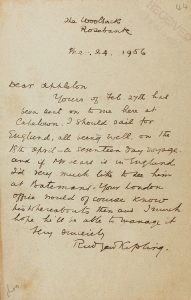 The Woolsack
Rosebank
Dear Appleton
Yours of Feb 27th has
been sent on to me here at
Capetown. I should sail for
England, all being well, on the
18th April - a seventeen day voyage.
and if Mr        is in England
I'd very much like to see him
at Bateman's. Your London
office would of course know
his whereabouts then and I much
hope he'll be able to manage it
Very sincerely
Rudyard Kipling.